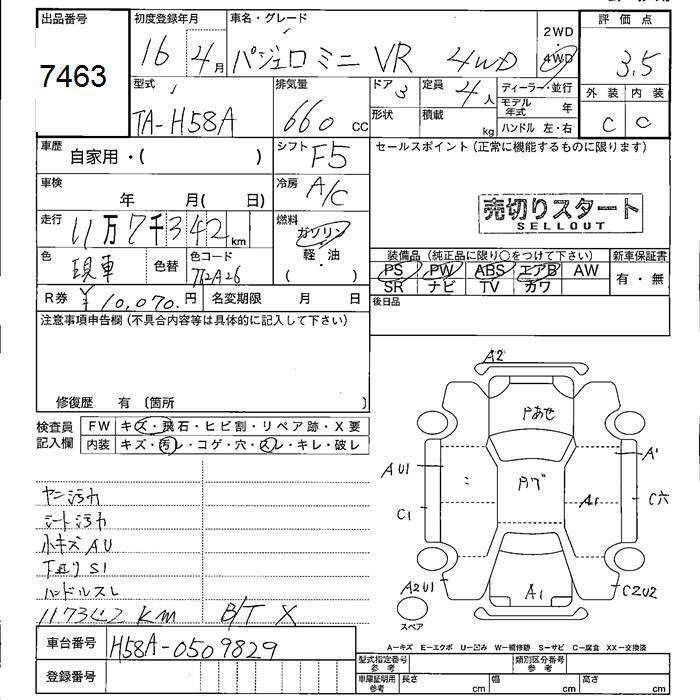 出品番号
7463
初度登録年月
16 4月
車名・グレード
パジェロ ミニ VR 4WD
2WD
4WD
評価点
3.5
外装 内装
C C
型式
TA-H58A
排気量
660 cc
ドア 3
形状
定員 4人
積載 kg
ディーラー・並行
モデル年式 年
ハンドル 左・右
車歴
自家用・( )
シフト F5
セールスポイント(正常に機能するものに限ります)
売切りスタート
SELLOUT
車検
年 月( 日)
冷房 A/C
走行
11万7千342km
燃料
ガソリン
軽・油
( )
色
現車
色替
色コード
装備品(純正品に限り○をつけて下さい)
新車保証書
PS PW ABS エアB AW
SR ナビ TV カワ
有・無
R券 ¥10,070.円
名変期限 月 日
後日品
注意事項申告欄(不具合内容等は具体的に記入して下さい)
修復歴 有〔箇所 〕
検査員記入欄
FW キズ・飛石・ヒビ割・リペア跡・X要
内装 キズ・汚レ・コゲ・穴・スレ・キレ・破レ
ヤニ汚れ
シート汚れ
小キズ AU
下廻り S1
ハンドルスレ
117342 KM B/T X
A2
Pあせ
AU1
A'
C1
A1
C穴
A2U1
A1
C2U2
スペア
A-キズ E-エクボ U-凹み W-補修跡 S-サビ C-腐食 XX-交換済
車台番号 H58A-0509829
登録番号
型式指定番号 参考
類別区分番号 参考
車庫証明用 参考
長さ cm
幅 cm
高さ cm